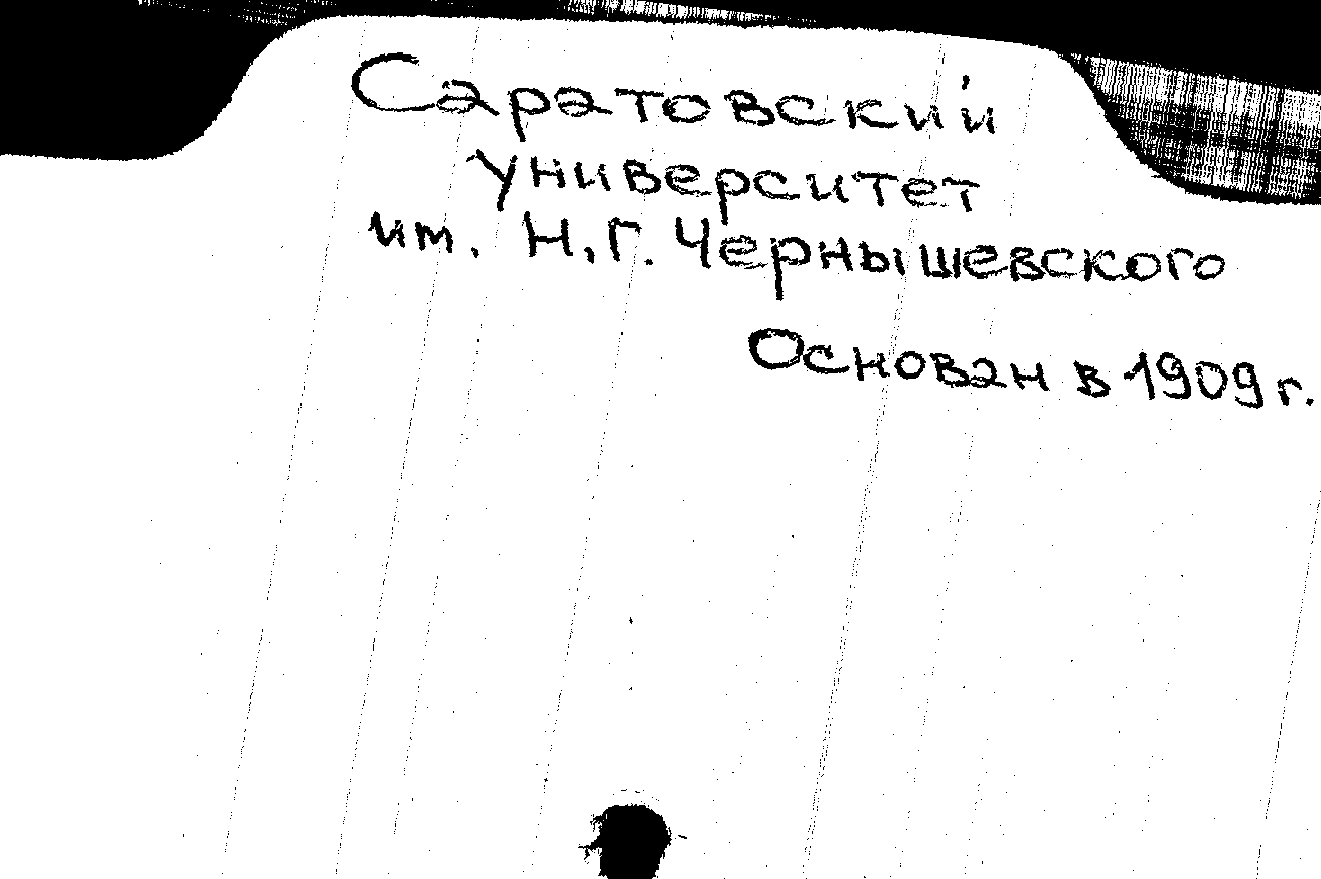 Саратовский
университет
им. Н.Г. Чернышевского
Основан в 1909 г.